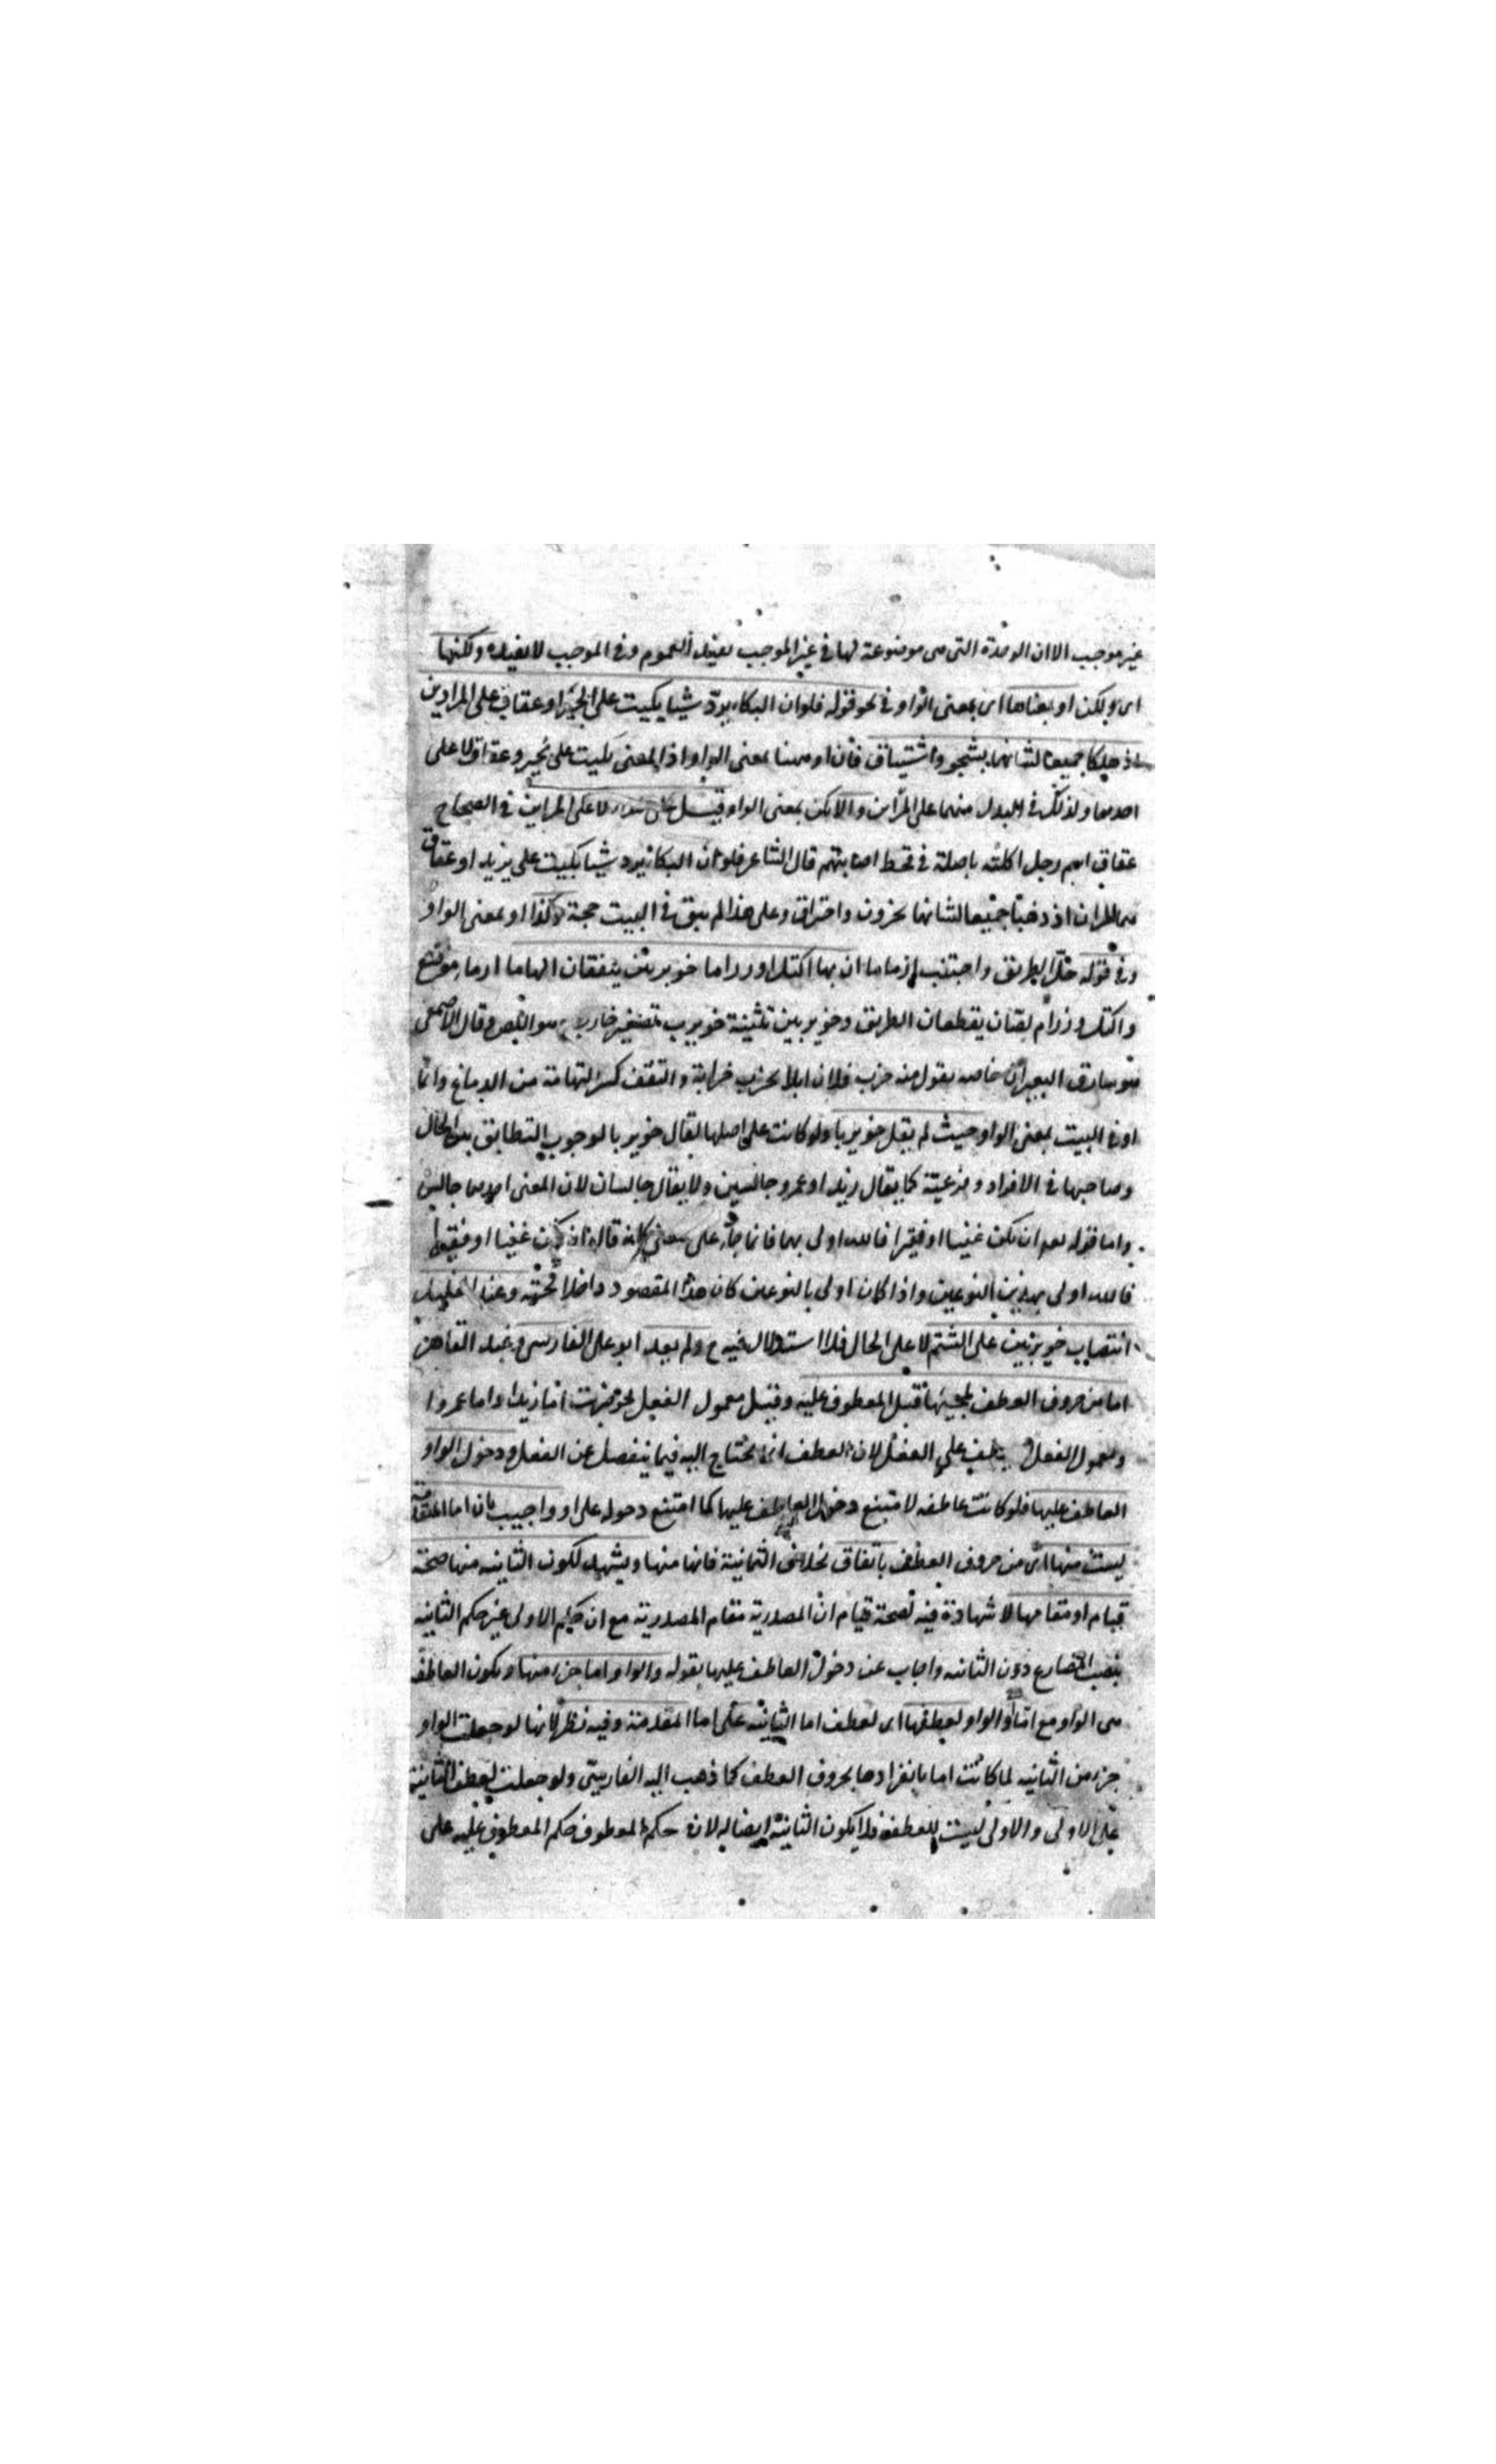 غير موجب الا ان الوحدة التى هى موضوعة لها فى غير الموجب يفيد العموم وفى الموجب لا يفيده ولكنها
اى ولكن او بمعناها اى بمعنى الواو فى نحو قوله فلو ان البكاء يردّ شيا بكيت على بجير او عقاق على المراين
اذ هلكا جميعا لشانهما بشجو واشتياق فان او ههنا بمعنى الواو اذ المعنى بكيت على بجير وعقاق لا على
احدهما ولذلك فى البدل منهما على المراين والا لم يكن بمعنى الواو قيل على المراين فى الصحاح
عقاق اسم رجل اكلته باهلة فى قحط اصابتهم قال الشاعر فلو ان البكا يرد شيا بكيت على يزيد او عقاق
هما المران اذ ذهبا جميعا لشانهما بحزون واحتراق وعلى هذا لم يبق فى البيت حجة وكذا او بمعنى الواو
وفى قوله خل الطريق واجتنب ارماما ان بها اكتل او رزاما خويربين ينقفان الهاما ارمام موضع
واكتل ورزام لصان يقطعان الطريق وخويربين تثنية خويرب تصغير خارب هو اللص وقال الاصمعى
هو سارق البعران خاصه يقول منه خرب فلان ابلا يخرب خرابة والنقف كسر الهامة من الدماغ وانما
او فى البيت بمعنى الواو حيث لم يقل خويربا ولو كانت على اصلها لقال خويربا لوجوب التطابق بين الحال
وصاحبها فى الافراد وفرعيته كما يقال زيد او عمرو جالسين ولا يقال جالسان لان المعنى احدهما جالس
واما قوله تعم ان يكن غنيا او فقيرا فالله اولى بهما فانما جاء على معنى كانه قال ان يكن غنيا او فقيرا
فالله اولى بهذين النوعين واذا كان اولى بالنوعين كان هذا المقصود داخلا تحته وعند الخليل
انتصاب خويربين على الشتم لا على الحال فلا استدلال فيه ح ولم يعد ابو على الفارسى وعبد القاهر
اما من حروف العطف لمجيئها قبل المعطوف عليه وقبل معمول الفعل نحو ضربت اما زيدا واما عمروا
ومعمول الفعل يعطف على الفعل لان العطف انما يحتاج اليه فيما ينفصل عن الفعل ودخول الواو
العاطف عليها فلو كانت عاطفه لامتنع دخول العاطف عليها كما امتنع دخوله على او واجيب بان اما المتقدمة
ليست منها اى من حروف العطف باتفاق بخلاف الثانية فانها منها ويشهد لكون الثانيه منها صحة
قيام او مقامها لا شهادة فيه لصحة قيام ان المصدرية مقام المصدرية مع ان حكم الاولى غير حكم الثانيه
بنصب المضارع دون الثانيه واجاب عن دخول العاطف عليها بقوله والواو اما جزء منها ويكون العاطف
هى الواو مع اما او الواو لعطفها اى لعطف اما الثانية على اما المتقدمة وفيه نظر لانها لو جعلت الواو
جزء من الثانيه لما كانت اما بانفرادها بحروف العطف كما ذهب اليه الفارسى ولو جعلت لعطف الثانية
على الاولى والاولى ليست للعطف فلا يكون الثانية ايضا له لان حكم المعطوف حكم المعطوف عليه على